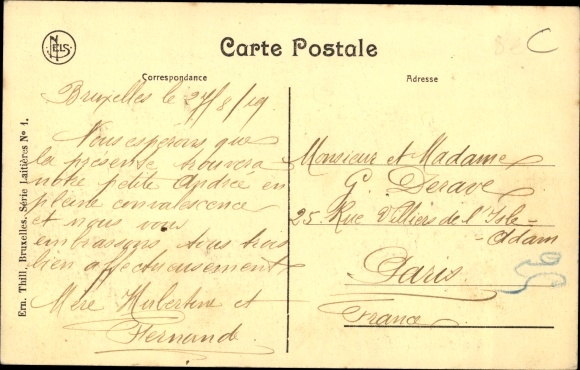 NELS
Carte Postale
Correspondance
Adresse
Ern. Thill, Bruxelles, Série Laitières No 1.
Bruxelles le 27/8/19
Nous esperons, que
la présente trouvera
notre petite Andrée en
pleine convalescence
et nous vous
embrassons tous trois
bien affectueusement
Mère Hubertine et
Fernande.
Monsieur et Madame
G. Derave
25 Rue Villiers de l'Isle-
-Adam
Paris.
France